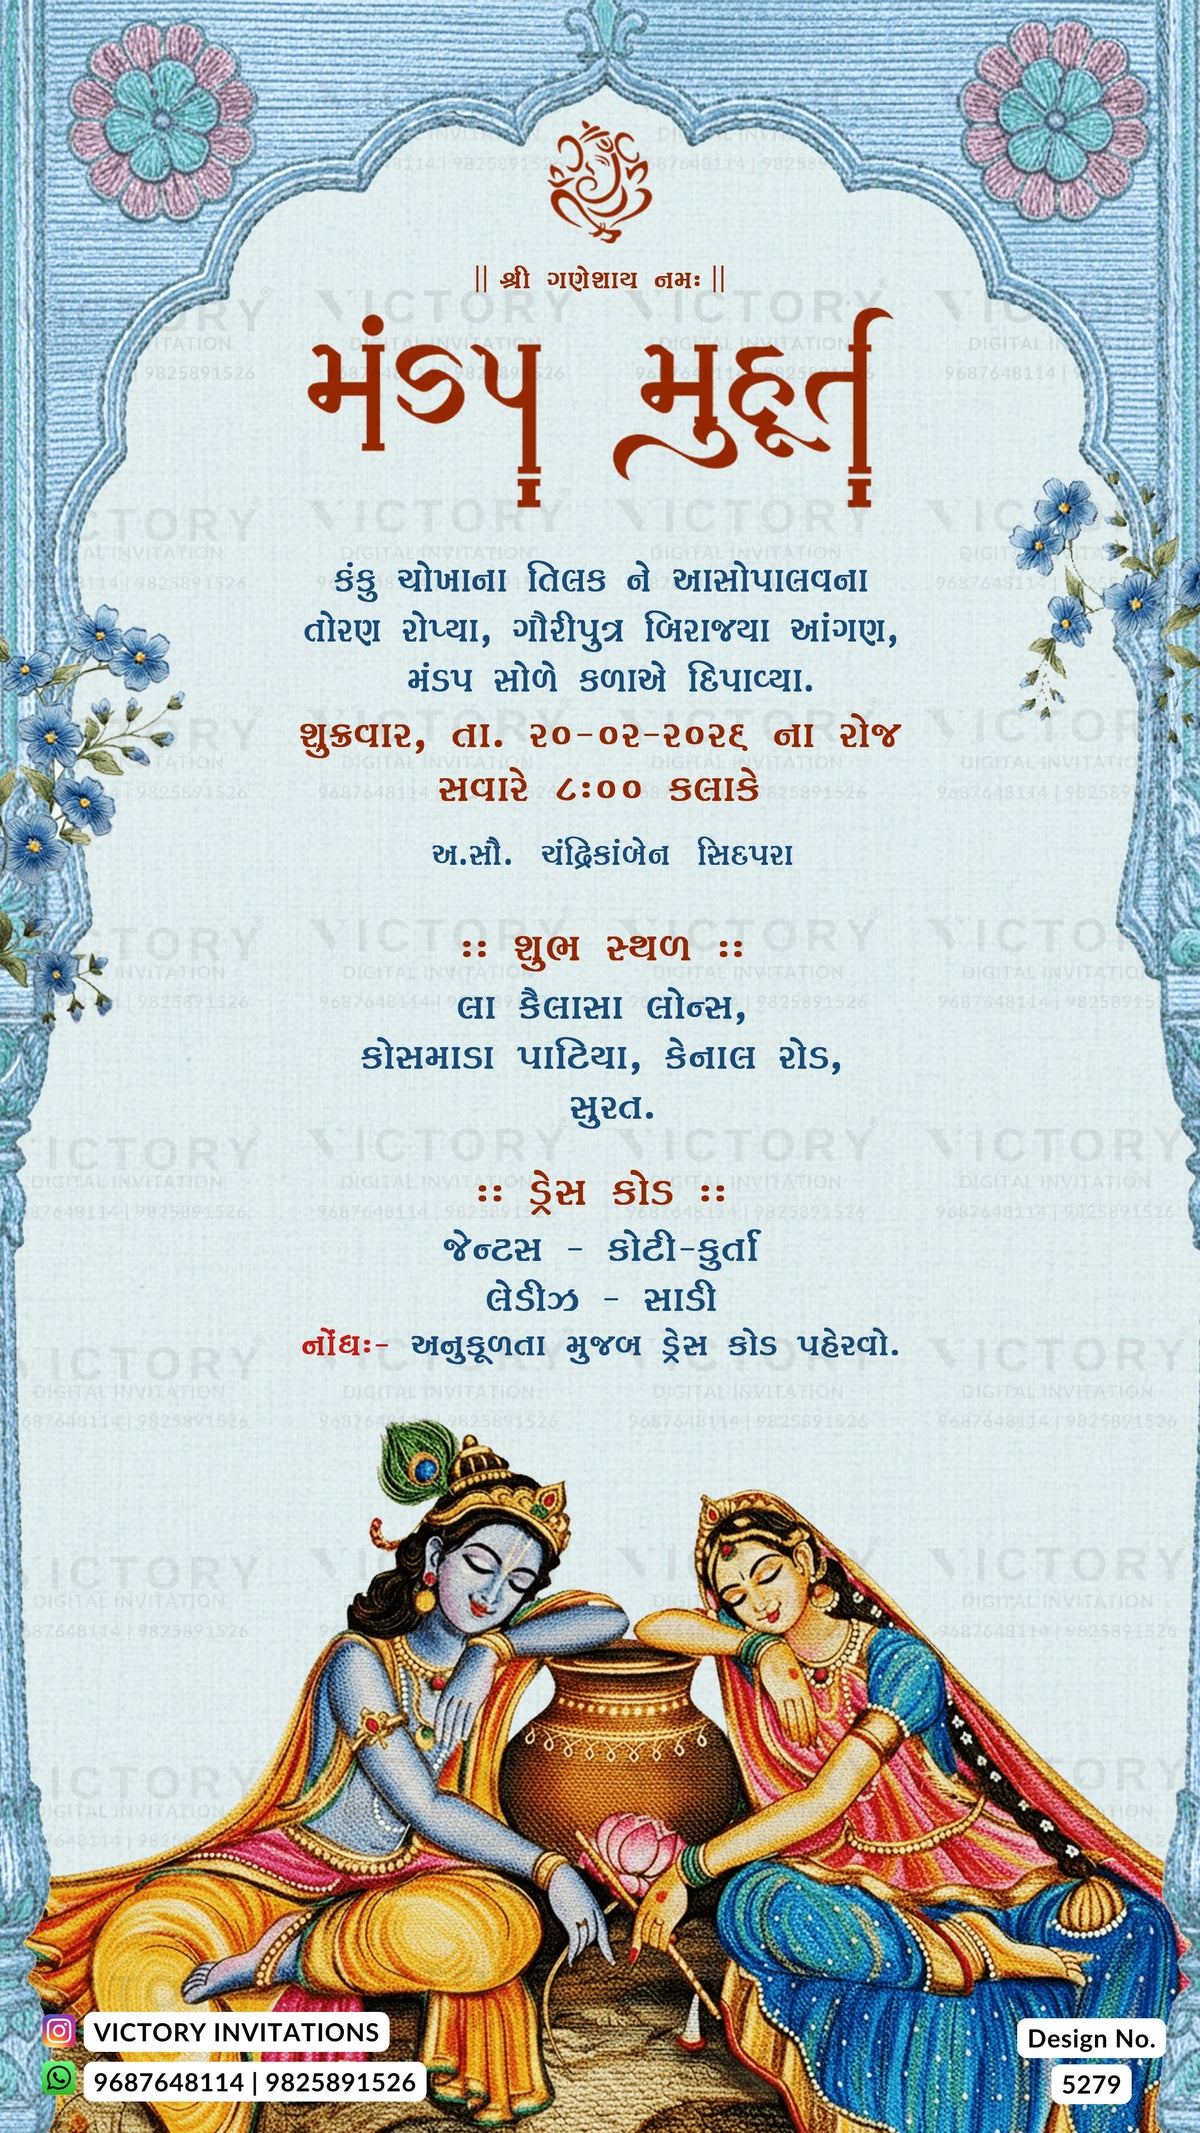 || શ્રી ગણેશાય નમઃ ||
મંડપ મુહૂર્ત
કંકુ ચોખાના તિલક ને આસોપાલવના
તોરણ રોપ્યા, ગૌરીપુત્ર બિરાજ્યા આંગણ,
મંડપ સોળે કળાએ દિપાવ્યા.
શુક્રવાર, તા. ૨૦-૦૨-૨૦૨૬ ના રોજ
સવારે ૮:૦૦ કલાકે
અ.સૌ. ચંદ્રિકાંબેન સિદપરા
:: શુભ સ્થળ ::
લા કૈલાસા લોન્સ,
કોસમાડા પાટિયા, કેનાલ રોડ,
સુરત.
:: ડ્રેસ કોડ ::
જેન્ટસ - કોટી-કુર્તા
લેડીઝ - સાડી
નોંધઃ- અનુકૂળતા મુજબ ડ્રેસ કોડ પહેરવો.
VICTORY INVITATIONS
9687648114 | 9825891526
Design No.
5279
VICTORY
DIGITAL INVITATION
9687648114 | 9825891526